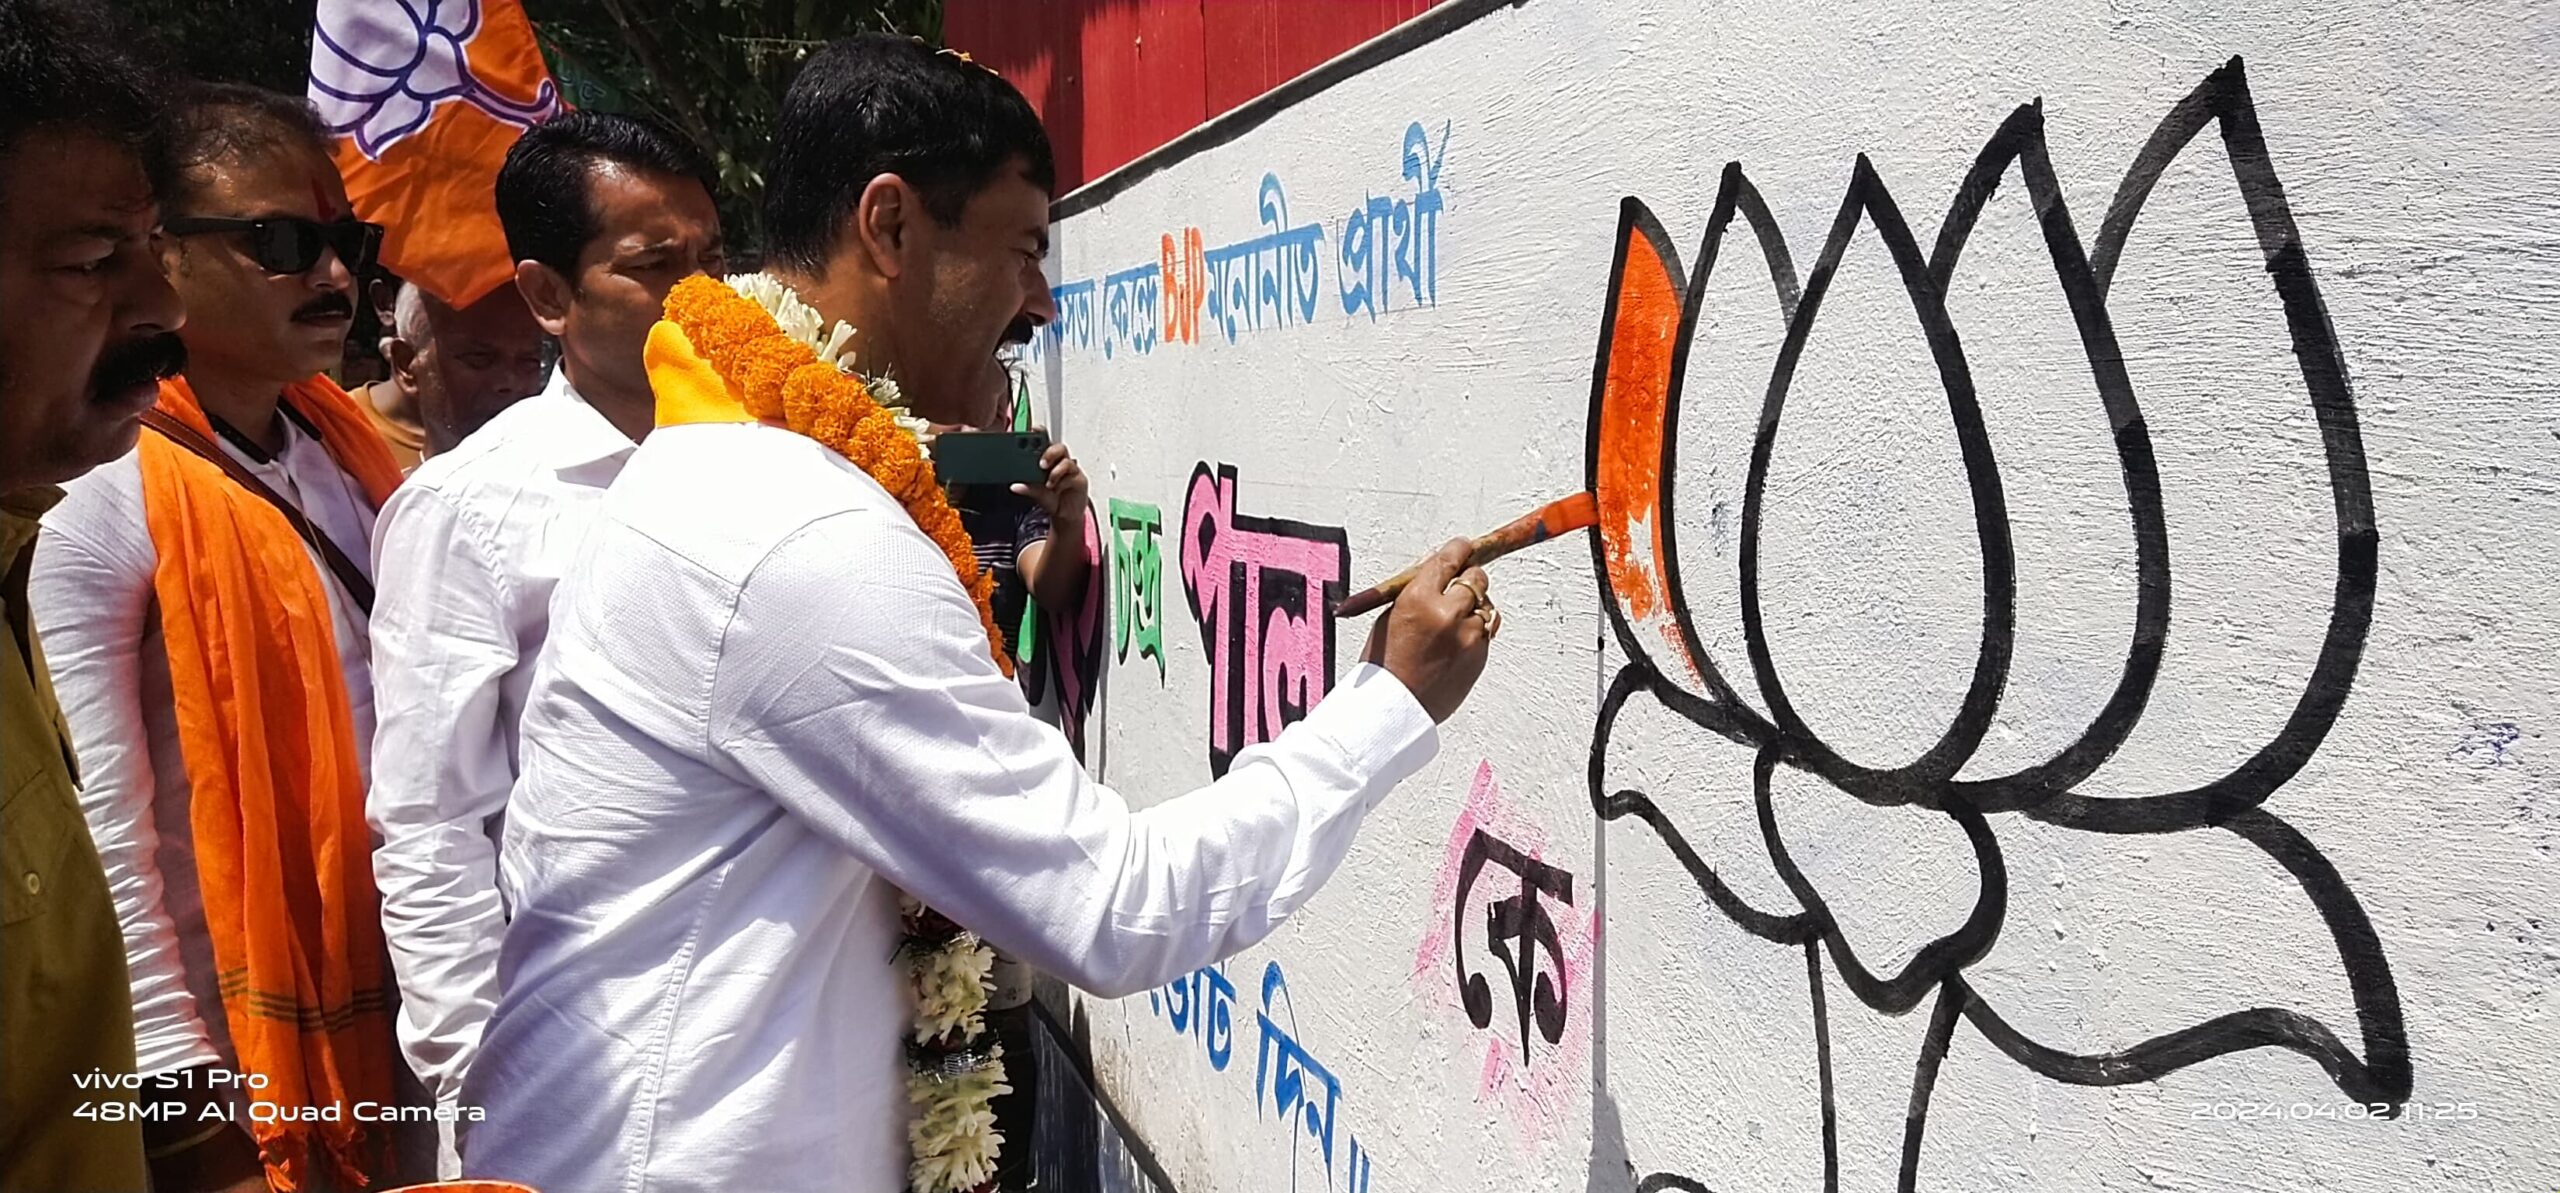 কেন্দ্রে BJP মনোনীত প্রার্থী
চন্দ্র পাল
কে
ভোট দিন ॥
vivo S1 Pro
48MP AI Quad Camera
2024.04.02 11:25